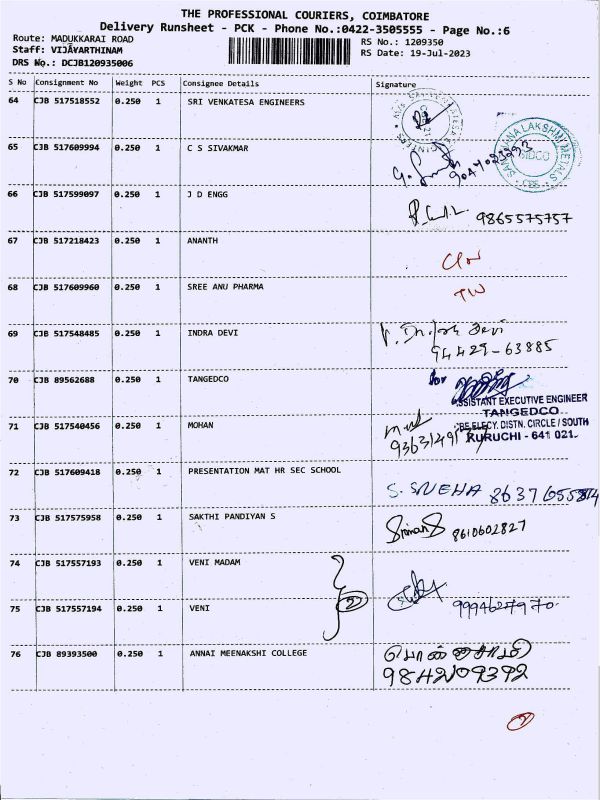 THE PROFESSIONAL COURIERS, COIMBATORE
Delivery Runsheet - PCK - Phone No.:0422-3505555 - Page No.:6
Route: MADUKKARAI ROAD
Staff: VIJAYARTHINAM
DRS No.: DCJB120935006
RS No.: 1209350
RS Date: 19-Jul-2023
S No Consignment No Weight PCS Consignee Details Signature
64 CJB 517518552 0.250 1 SRI VENKATESA ENGINEERS
65 CJB 517609994 0.250 1 C S SIVAKMAR
66 CJB 517599097 0.250 1 J D ENGG 9865575757
67 CJB 517218423 0.250 1 ANANTH
68 CJB 517609960 0.250 1 SREE ANU PHARMA
69 CJB 517548485 0.250 1 INDRA DEVI
94429-63885
70 CJB 89562688 0.250 1 TANGEDCO for
ASSISTANT EXECUTIVE ENGINEER
TANGEDCO
71 CJB 517540456 0.250 1 MOHAN
DISTN. CIRCLE / SOUTH
KURUCHI - 641 021.
72 CJB 517609418 0.250 1 PRESENTATION MAT HR SEC SCHOOL
S. SNEHA
73 CJB 517575958 0.250 1 SAKTHI PANDIYAN S 8610602827
74 CJB 517557193 0.250 1 VENI MADAM
75 CJB 517557194 0.250 1 VENI 2
76 CJB 89393500 0.250 1 ANNAI MEENAKSHI COLLEGE
9842209392